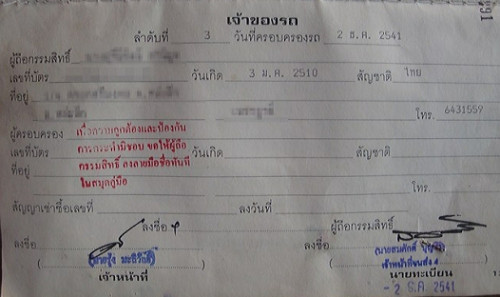 เจ้าของรถ
ลำดับที่ 3 วันที่ครอบครองรถ 2 ธ.ค. 2541
ผู้ถือกรรมสิทธิ์
เลขที่บัตร วันเกิด 3 ม.ค. 2510 สัญชาติ ไทย
ที่อยู่
โทร. 6431559
ผู้ครอบครอง เพื่อความถูกต้องและป้องกัน
เลขที่บัตร การกระทำมิชอบ ขอให้ผู้ถือ วันเกิด สัญชาติ
ที่อยู่ กรรมสิทธิ์ ลงลายมือชื่อทันที
ในสมุดคู่มือ โทร.
สัญญาเช่าซื้อเลขที่ ลงวันที่ ผู้ถือกรรมสิทธิ์
ลงชื่อ ลงชื่อ ลงชื่อ
เจ้าหน้าที่ นายทะเบียน
- 2 ธ.ค. 2541